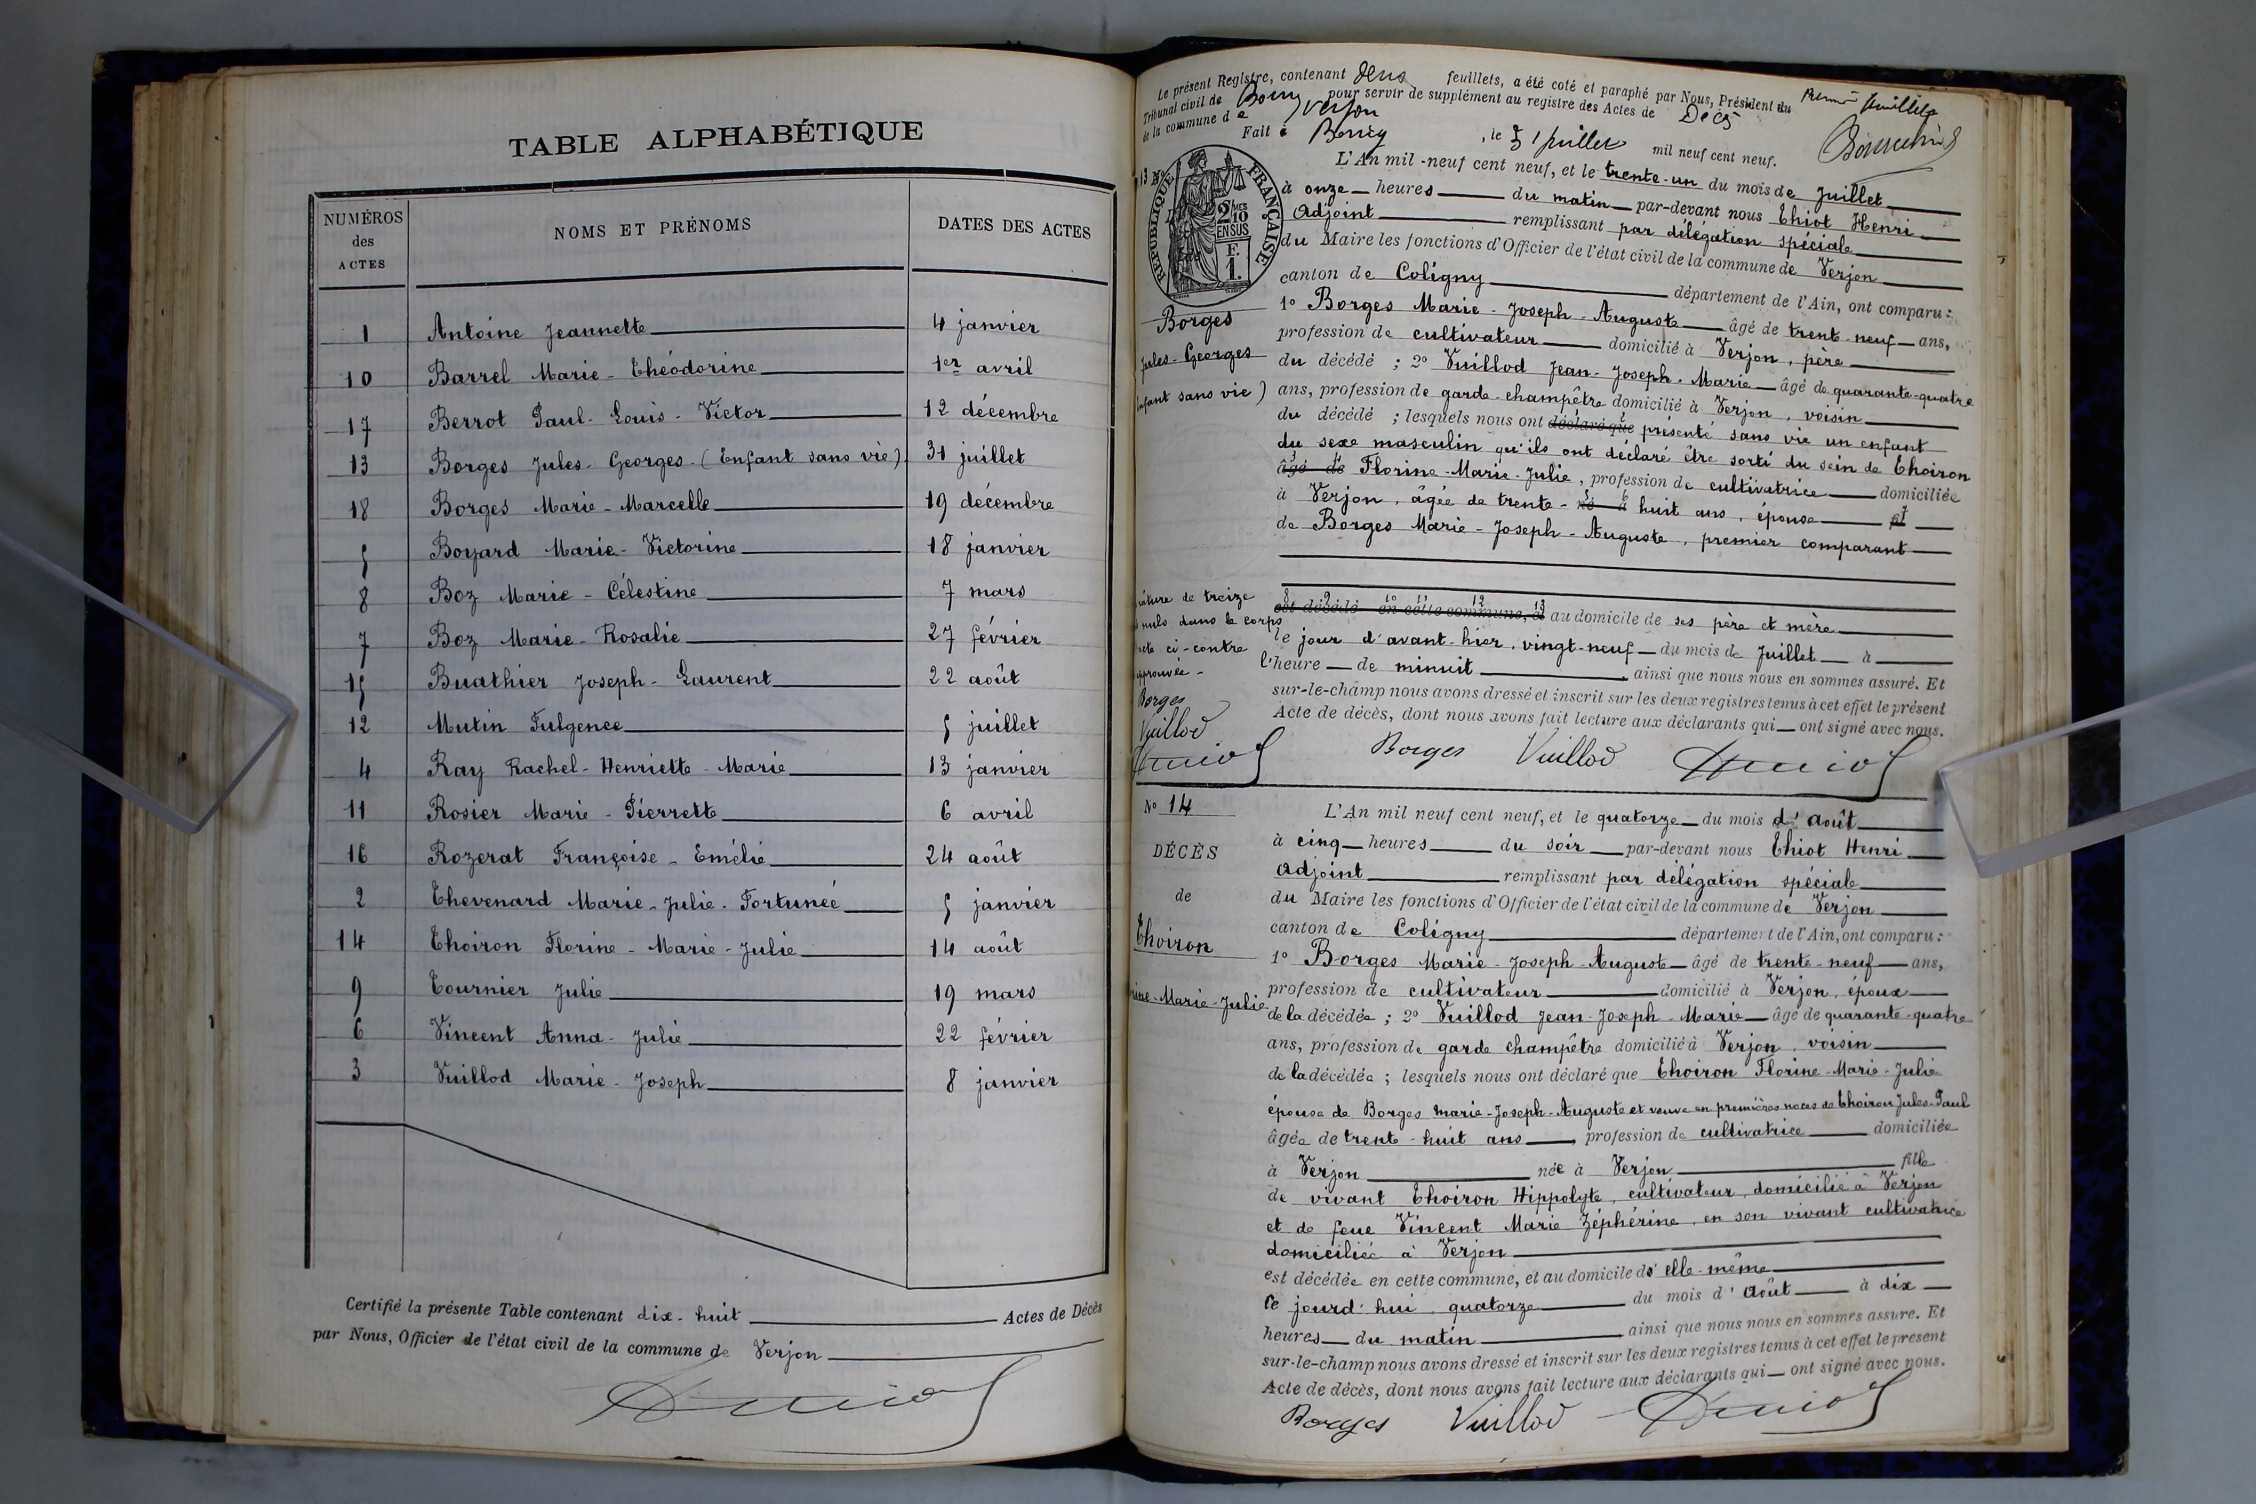 TABLE ALPHABÉTIQUE
NUMÉROS des ACTES
NOMS ET PRÉNOMS
DATES DES ACTES
1 Antoine Jeannette 4 janvier
10 Barrel Marie-Théodorine 1er avril
17 Berrot Paul-Louis-Victor 12 décembre
13 Borges Jules-Georges (Enfant sans vie) 31 juillet
18 Borges Marie-Marcelle 19 décembre
5 Boyard Marie-Victorine 18 janvier
8 Boz Marie-Célestine 7 mars
7 Boz Marie-Rosalie 27 février
15 Buathier Joseph-Laurent 22 août
12 Mutin Fulgence 5 juillet
4 Ray Rachel-Henriette-Marie 13 janvier
11 Rosier Marie-Pierrette 6 avril
16 Rozerat Françoise-Emélie 24 août
2 Thevenard Marie-Julie-Fortunée 5 janvier
14 Thoiron Florine-Marie-Julie 14 août
9 Tournier Julie 19 mars
6 Vincent Anna-Julie 22 février
3 Vuillod Marie-Joseph 8 janvier
Certifié la présente Table contenant dix-huit Actes de Décès
par Nous, Officier de l'état civil de la commune de Verjon
Le présent Registre, contenant deux feuillets, a été coté et paraphé par Nous, Président du
Tribunal civil de Bourg pour servir de supplément au registre des Actes de Décès
de la commune de Verjon
Fait à Bourg, le 31 juillet mil neuf cent neuf.
premier feuillet
RÉPUBLIQUE FRANÇAISE
2/10 EN SUS
F. 1.
13
Borges
Jules-Georges
enfant sans vie)
L'An mil-neuf cent neuf, et le trente-un du mois de Juillet
à onze heures du matin par-devant nous Thiot Henri
Adjoint remplissant par délégation spéciale
du Maire les fonctions d'Officier de l'état civil de la commune de Verjon
canton de Coligny département de l'Ain, ont comparu:
1° Borges Marie-Joseph-Auguste âgé de trent-neuf ans,
profession de cultivateur domicilié à Verjon, père
du décédé ; 2° Vuillod Jean-Joseph-Marie âgé de quarante-quatre
ans, profession de garde-champêtre domicilié à Verjon, voisin
du décédé ; lesquels nous ont déclaré que présenté sans vie un enfant
du sexe masculin qu'ils ont déclaré être sorti du sein de Thoiron
âgé de Florine-Marie-Julie, profession de cultivatrice domiciliée
à Verjon, âgée de trente- né à huit ans, épouse et
de Borges Marie-Joseph-Auguste, premier comparant
est décédé en cette commune, et au domicile de ses père et mère
le jour d'avant-hier, vingt-neuf du mois de Juillet à
l'heure de minuit ainsi que nous nous en sommes assuré. Et
sur-le-champ nous avons dressé et inscrit sur les deux registres tenus à cet effet le présent
Acte de décès, dont nous avons fait lecture aux déclarants qui ont signé avec nous.
rature de treize
nuls dans le corps
acte ci-contre
approuvée -
Borges
Vuillod
Borges Vuillod
N° 14
DÉCÈS
de
Thoiron
rine-Marie-Julie
L'An mil neuf cent neuf, et le quatorze du mois d'août
à cinq heures du soir par-devant nous Thiot Henri
Adjoint remplissant par délégation spéciale
du Maire les fonctions d'Officier de l'état civil de la commune de Verjon
canton de Coligny département de l'Ain, ont comparu:
1° Borges Marie-Joseph-Auguste âgé de trente-neuf ans,
profession de cultivateur domicilié à Verjon, époux
de la décédée ; 2° Vuillod Jean-Joseph-Marie âgé de quarante-quatre
ans, profession de garde champêtre domicilié à Verjon, voisin
de la décédée ; lesquels nous ont déclaré que Thoiron Florine-Marie-Julie
épouse de Borges Marie-Joseph-Auguste et veuve en premières noces de Thoiron Jules-Paul
âgée de trente-huit ans, profession de cultivatrice domiciliée
à Verjon née à Verjon fille
de vivant Thoiron Hippolyte, cultivateur, domicilié à Verjon
et de feue Vincent Marie Zéphérine, en son vivant cultivatrice
domiciliée à Verjon
est décédée en cette commune, et au domicile d'elle-même
ce jourd'hui quatorze du mois d'Août à dix
heures du matin ainsi que nous nous en sommes assuré. Et
sur-le-champ nous avons dressé et inscrit sur les deux registres tenus à cet effet le présent
Acte de décès, dont nous avons fait lecture aux déclarants qui ont signé avec nous.
Borges Vuillod